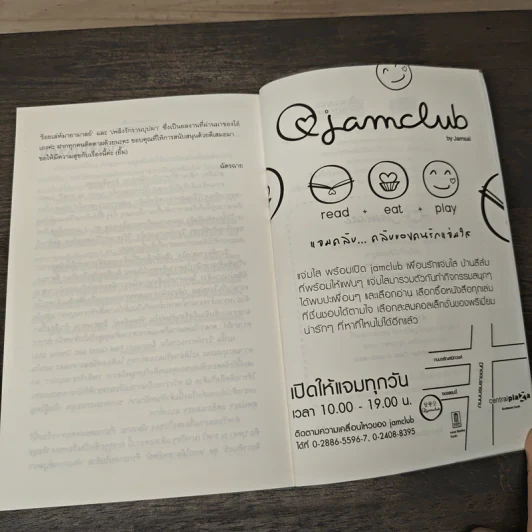 ร้อยเล่ห์มายามาตย์' และ 'เพลิงรักรานบุปผา' ซึ่งเป็นผลงานที่ผ่านมาของโอ๋
เองค่ะ ฝากทุกคนติดตามด้วยนะคะ ขอบคุณที่ให้การสนับสนุนด้วยดีเสมอมา...
ขอให้มีความสุขกับเรื่องนี้ค่ะ (ยิ้ม)
ฉัตรฉาย
@jamclub
by Jamsai
read + eat + play
แจมคลับ... คลับของคนรักแจ่มใส
แจ่มใส พร้อมเปิด jamclub เพื่อนรักแจ่มใส บ้านสีส้ม
ที่พร้อมให้แฟนๆ แจ่มใสมารวมตัวกันทำกิจกรรมสนุกๆ
ได้พบปะเพื่อนๆ และเลือกอ่าน เลือกซื้อหนังสือทุกเล่ม
ที่ชื่นชอบได้ตามใจ เลือกสะสมคอลเล็กชั่นของพรีเมี่ยม
น่ารักๆ ที่หาที่ไหนไม่ได้อีกแล้ว
เปิดให้แจมทุกวัน
เวลา 10.00 - 19.00 น.
ติดตามความเคลื่อนไหวของ jamclub
ได้ที่ 0-2886-5596-7, 0-2408-8395
ถนนบรมราชชนนี
centralplaza